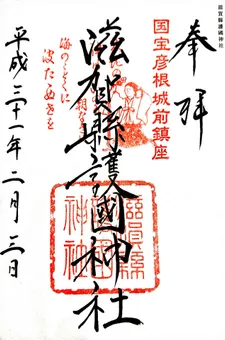 滋賀縣護國神社
奉拝
国宝彦根城前鎮座
滋賀縣護國神社
海のごとくに
波たぬさを
滋賀縣
神社
平成三十一年二月三日